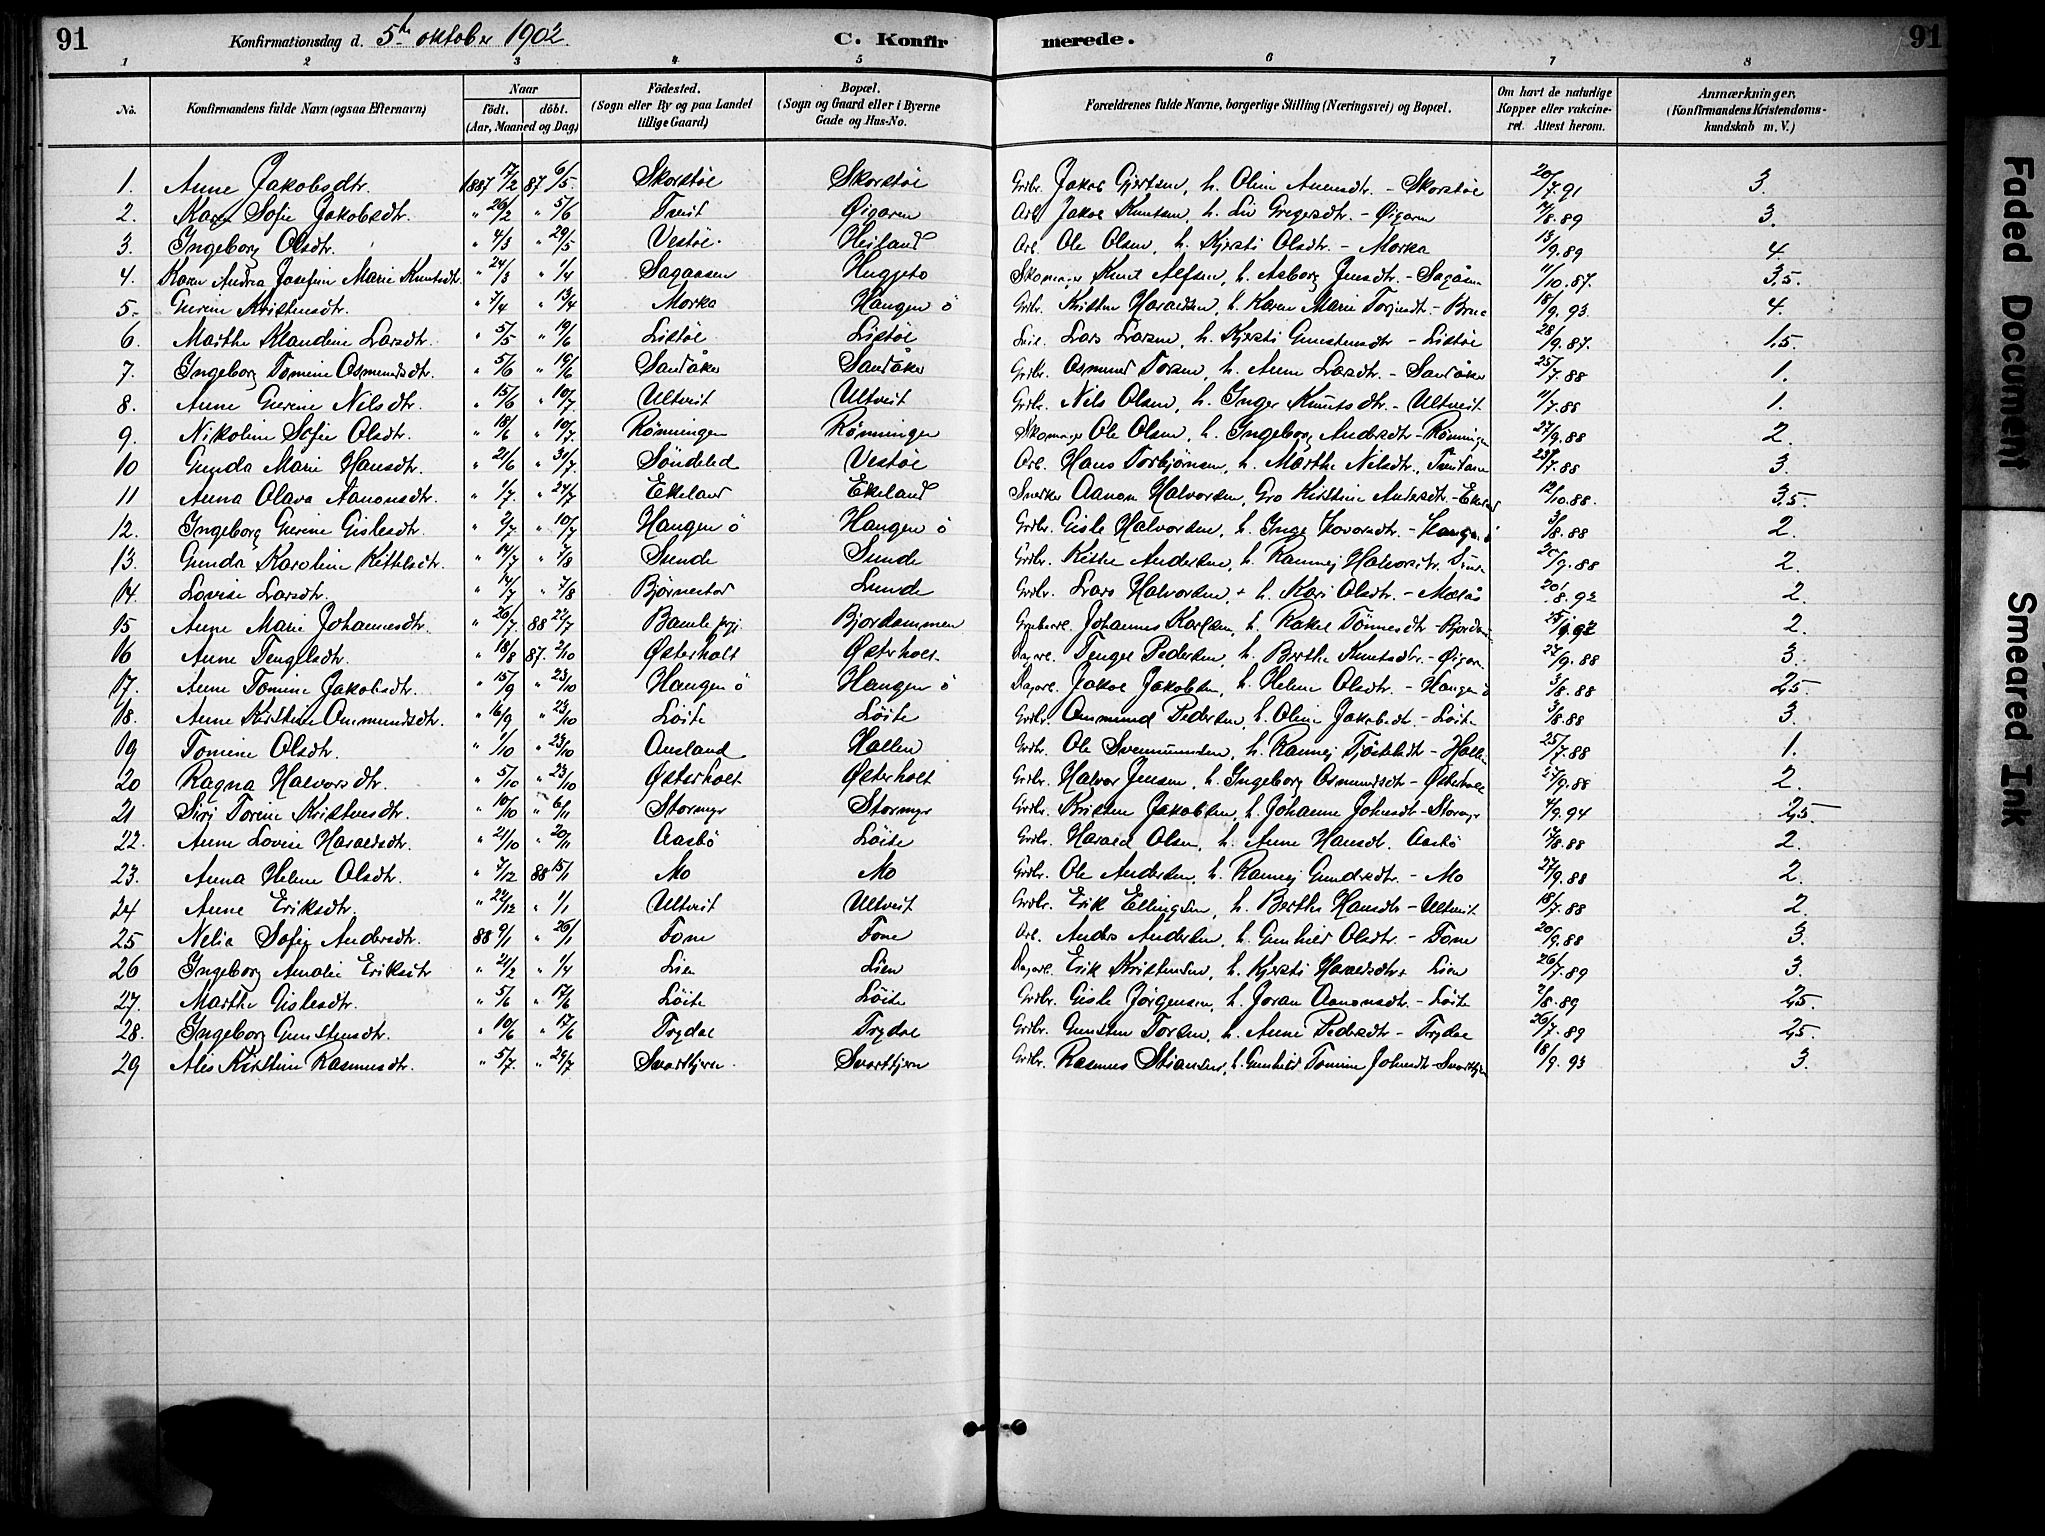 91 Konfirmationsdag d. 5te oktober 1902. C. Konfir merede. 91
1 2 3 4 5 6 7 8
No. Konfirmandens fulde Navn (ogsaa Efternavn) Naar født. døbt. (Aar, Maaned og Dag) Fødested. (Sogn eller By og paa Landet tillige Gaard) Bopæl. (Sogn og Gaard eller i Byerne Gade og Hus-No. Forældrenes fulde Navne, borgerlige Stilling (Næringsvei) og Bopæl. Om havt de naturlige Kopper eller vakcineret. Attest herom. Anmærkninger. (Konfirmandens Kristendomskundskab m. V.)
1. Anne Jakobsdtr. 1887 17/2 87 6/5. Skorstøl Skorstøl Grdbr. Jakob Gjertsen, h. Oline Anensdtr. - Skorstøl 20/7.91 3.
2. Karen Sofie Jakobsdtr. " 26/2 " 5/6 Tveit Øigaren Arb. Jakob Knutsen, h. Liv Gregersdtr. - Øigaren /8.89 3.
3. Ingeborg Olsdtr. " 4/3 " 29/5 Vestøl. Heiland Arb. Ole Olsen, h. Kjersti Olsdtr. - Morka 13/9.89 4.
4. Karen Andrea Josefine Marie Knutsdtr. " 24/3 " 1/4 Sagaasen Huggeto Skomager Knut Alfsen, h. Asborg Jensdtr. - Sagåsen 11/10.87. 3,5.
5. Gurine Kristensdtr. " 7/4 " 13/4 Morka Hangen ö Grdbr. Kristen Haraldsen, h. Karen Marie Torjusdtr. - 18/9.93. 4.
6. Marthe Klandine Larsdtr. " 5/5 " 19/6 Listøl Listøl Lars Larsen, h. Kjersti Gunstensdtr - Listøl 28/9.87. 1,5.
7. Ingeborg Tomine Osmundsdtr. " 5/6 " 19/6 Sandåker Sandåker Grdbr. Osmund Torsen, h. Anne Larsdtr. - Sandåker 25/7.88 1.
8. Anne Gurine Nilsdtr. " 15/6 " 10/7 Ultveit Ultveit Grdbr. Nils Olsen, h. Inger Knutsdtr. - Ultveit 11/7.88 1.
9. Nikoline Sofie Olsdtr. " 18/6 " 10/7 Rönningen Rönningen Skomager Ole Olsen, h. Ingeborg Andersdtr - Rönningen 27/9.88 2.
10 Gunda Marie Hansdtr. " 21/6 " 31/7 Söndeled Vestøl Arb. Hans Torbjønsen, h. Marthe Nilsdtr., 23/7.88 3.
11 Anna Olava Aanonsdtr. " 1/7 " 24/7 Ekeland Ekeland Snedker Aanon Halvorsen, Gro Kirstine Andersdtr. - Ekeland 12/10.88. 3,5.
12. Ingeborg Gurine Gislesdtr. " 2/7 " 10/7 Hangen ö Hangen ö Grdbr. Gisle Halvorsen, h. Inge - Hangen ö 3/8.88 2.
13. Gunda Karoline Kittelsdtr. " 14/7 " 7/8 Sunde Sunde Grdbr. Kittel Andersen, h. Rannej Halvorsdtr. Sunde 20/9.88 2.
14. Lovise Larsdtr. " 14/7 " 7/8 Björnestad Lunde Grdbr. Lars Halvorsen, + h. Kari Olsdtr. - 20/8.92 2.
15 Anne Marie Johannesdtr. " 26/7. 88 22/7 Bamle prgj. Bjordammen Grubearb. Johannes Karlsen, h. Rakel Tönnesdtr - Bjordammen 25/9.92 2.
16 Anne Tengelsdtr. " 18/8 87. 2/10 Østerholt Østerholt Dagarb. Tengel Pedersen, h. Berthe Knutsdtr. - Øigaren 27/9.88 3.
17. Anne Tomine Jakobsdtr. " 15/9 " 23/10 Hangen ö Hangen ö Dagarb. Jakob Jakobsen, h. Helene Olsdtr. - Hangen ö 3/8.88 2,5.
18. Anne Kirstine Ommundsdtr. " 16/9 " 23/10 Löite Löite Grdbr. Ommund Pedersen, h. Oline Jakobsdtr - Löite 3/8.88 3.
19 Tomine Olsdtr. " 1/10 " 23/10 Ausland Hallen Grdbr. Ole Svennumsen, h. Rannej Tjöstelsdtr - Hallen 25/7.88 1.
20 Ragna Halvorsdtr. " 5/10 " 23/10 Østerholt Østerholt Grdbr. Halvor Jensen, h. Ingeborg Osmundsdtr - Østerholt 27/9.88 2.
21 Siri Torine Kristensdtr. " 10/10 " 6/11 Stormyr Stormyr Grdbr. Kristen Jakobsen, h. Johanne Johnsdtr - Stormyr 7/9.94 2,5
22. Anne Lovise Haraldsdtr. " 21/10 " 20/11 Aasbö Löite Grdbr. Harald Olsen, h. Anne Hansdtr. Aasbö 17/8.88 2.
23. Anna Helene Olsdtr. " 7/12 88 15/1 Mo Mo Grdbr. Ole Andersen, h. Rannej Gundersdtr. - Mo 27/9.88 2.
24 Anne Eriksdtr. " 22/12 " 1/1 Ultveit Ultveit Grdbr. Erik Ellingsen, h. Berthe Hansdtr - Ultveit 18/7.88 2.
25 Nelie Sofie Andersdtr. 88 9/1 " 26/1 Fone Fone Arb. Anders Andersen, h. Gunhild Olsdtr. - Fone 20/9.88 3.
26 Ingeborg Amalie Eriksdtr " 21/2 " 1/4 Lien Lien Dagarb. Erik Kristensen, h. Kjersti Haraldsdtr. Lien 26/7.89 3.
27. Marthe Gislesdtr. " 5/6 " 17/6 Löite Löite Grdbr. Gisle Jörgensen, h. Joran Aanonsdtr. - Löite 2/8.89 2,5.
28. Ingeborg Gunstensdtr. " 10/6 " 17/6 Trydal Trydal Grdbr. Gunsten Torsen, h. Anne Pedersdtr - Trydal 26/7.89 2,5.
29 Alis Kirstine Rasmusdtr. " 5/7. " 29/7 Svartkjern. Svartkjern Grdbr. Rasmus Stiansen, h. Gunhild Tomine Johnsdtr - Svartkjern 18/9.93 3.
Faded Document
Smeared Ink